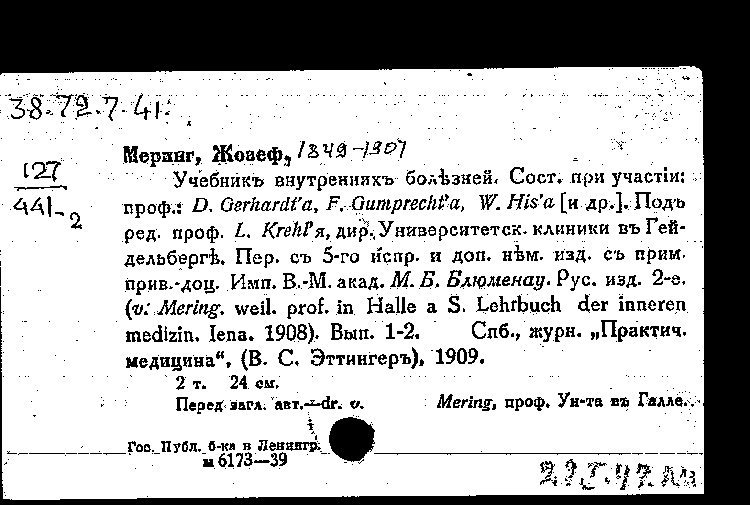 38.72.7.41.
Меринг, Жозеф, 1849-1907
127
441-2
Учебникъ внутреннихъ болѣзней. Сост. при участіи:
проф.: D. Gerhardt'a, F. Gumprecht'a, W. His'a [и др.]. Подъ
ред. проф. L. Krehl'я, дир. Университетск. клиники въ Гей-
дельбергѣ. Пер. съ 5-го испр. и доп. нѣм. изд. съ прим.
прив.-доц. Имп. В.-М. акад. М. Б. Блюменау. Рус. изд. 2-е.
(v: Mering. weil. prof. in Halle a S. Lehrbuch der inneren
medizin. Iena. 1908). Вып. 1-2. Спб., журн. „Практич.
медицина“, (В. С. Эттингеръ), 1909.
2 т. 24 см.
Перед загл. авт.—dr. v. Mering, проф. Ун-та въ Галле.
Гос. Публ. б-ка в Ленингр.
м 6173—39